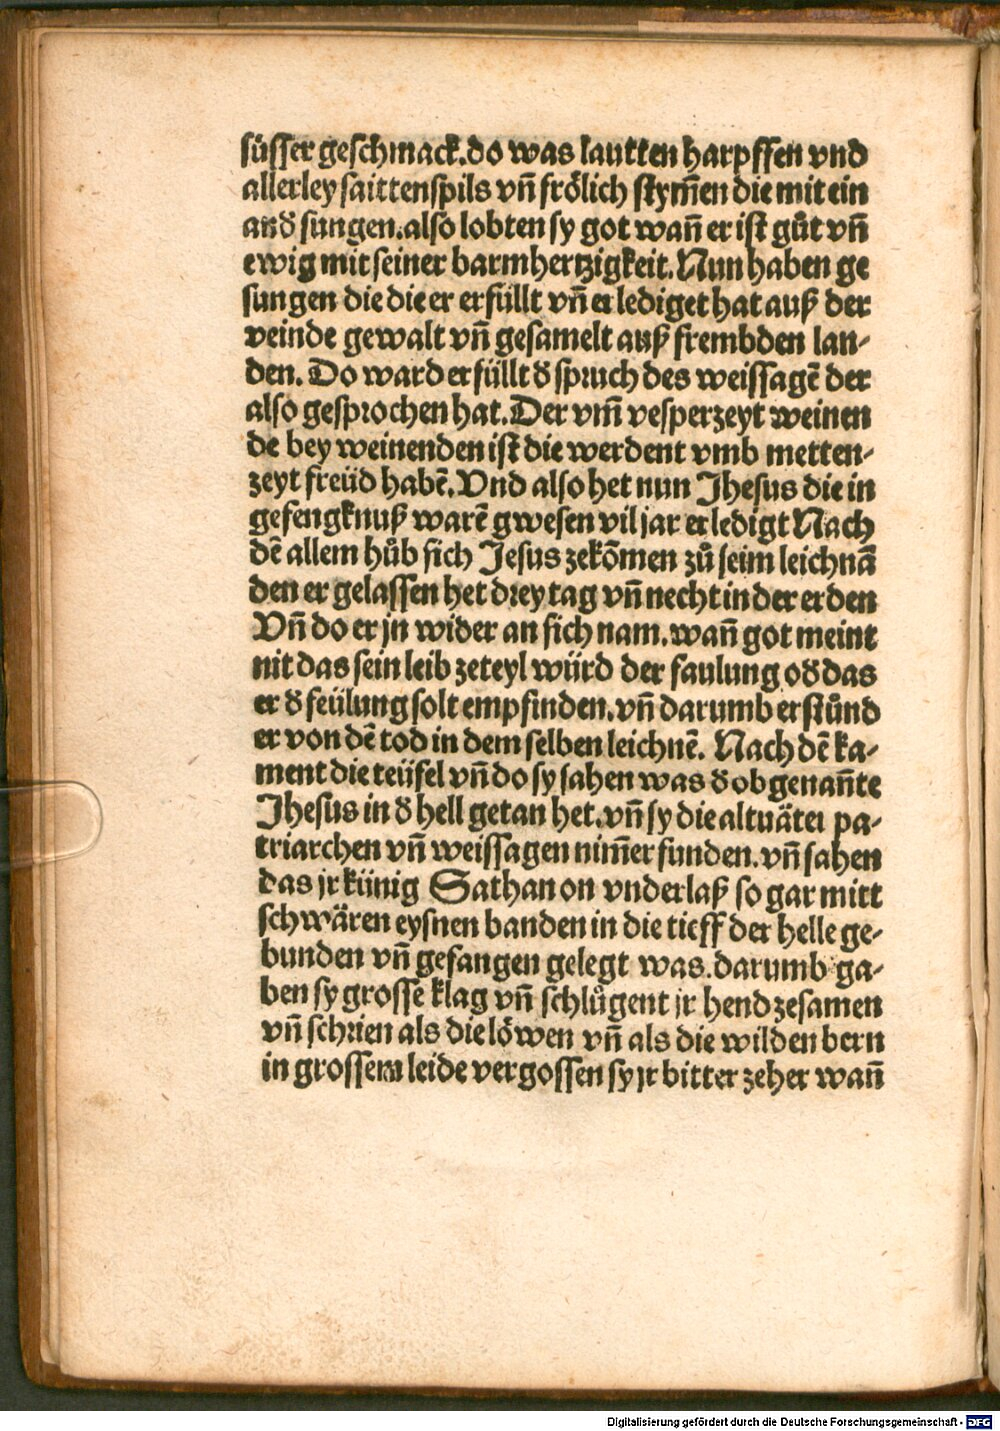 süsser geschmack.do was lautten harpffen vnd
allerley saittenspils vñ frölich stym̃en die mit ein
and̕ sungen.also lobten sy got wañ er ist gůt vñ
ewig mit seiner barmhertzigkeit. Nun haben ge
sungen die die er erfüllt vñ erlediget hat auß der
veinde gewalt vñ gesamelt auß frembden lan-
den. Do ward erfüllt d̕ spruch des weissagẽ der
also gesprochen hat. Der vm̃ vesperzeyt weinen
de bey weinenden ist die werdent vmb metten-
zeyt freüd habẽ. Vnd also het nun Jhesus die in
gefengknuß warẽ gwesen vil jar erledigt Nach
dẽ allem hůb sich Jesus zekõmen zů seim leichnã
den er gelassen het drey tag vñ necht in der erden
Vñ do er jn wider an sich nam. wañ got meint
nit das sein leib zeteyl würd der faulung od̕ das
er d̕ feülung solt empfinden. vñ darumb erstůnd
er von dẽ tod in dem selben leichnẽ. Nach dẽ ka-
ment die teüfel vñ do sy sahen was d̕ obgenañte
Jhesus in d̕ hell getan het. vñ sy die altuäter pa-
triarchen vñ weissagen nim̃er funden. vñ sahen
das jr künig Sathan on vnderlaß so gar mitt
schwären eysnen banden in die tieff der helle ge-
bunden vñ gefangen gelegt was. darumb ga-
ben sy grosse klag vñ schlůgent jr hend zesamen
vñ schrien als die löwen vñ als die wilden bern
in grossem leide vergossen sy jr bitter zeher wañ
Digitalisierung gefördert durch die Deutsche Forschungsgemeinschaft - DFG